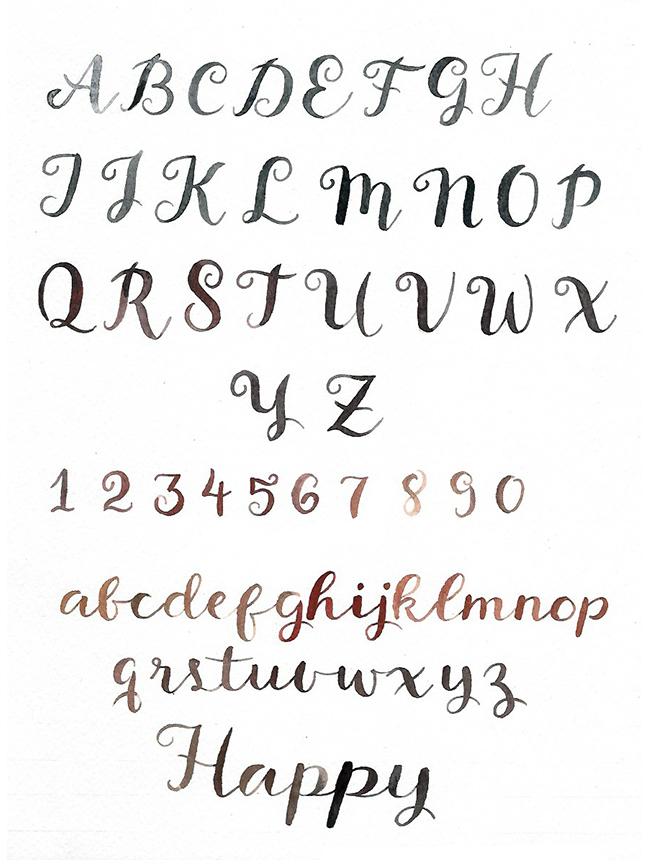 A B C D E F G H
I J K L M N O P
Q R S T U V W X
Y Z
1 2 3 4 5 6 7 8 9 0
abcdefghijklmnop
qrstuvwxyz
Happy